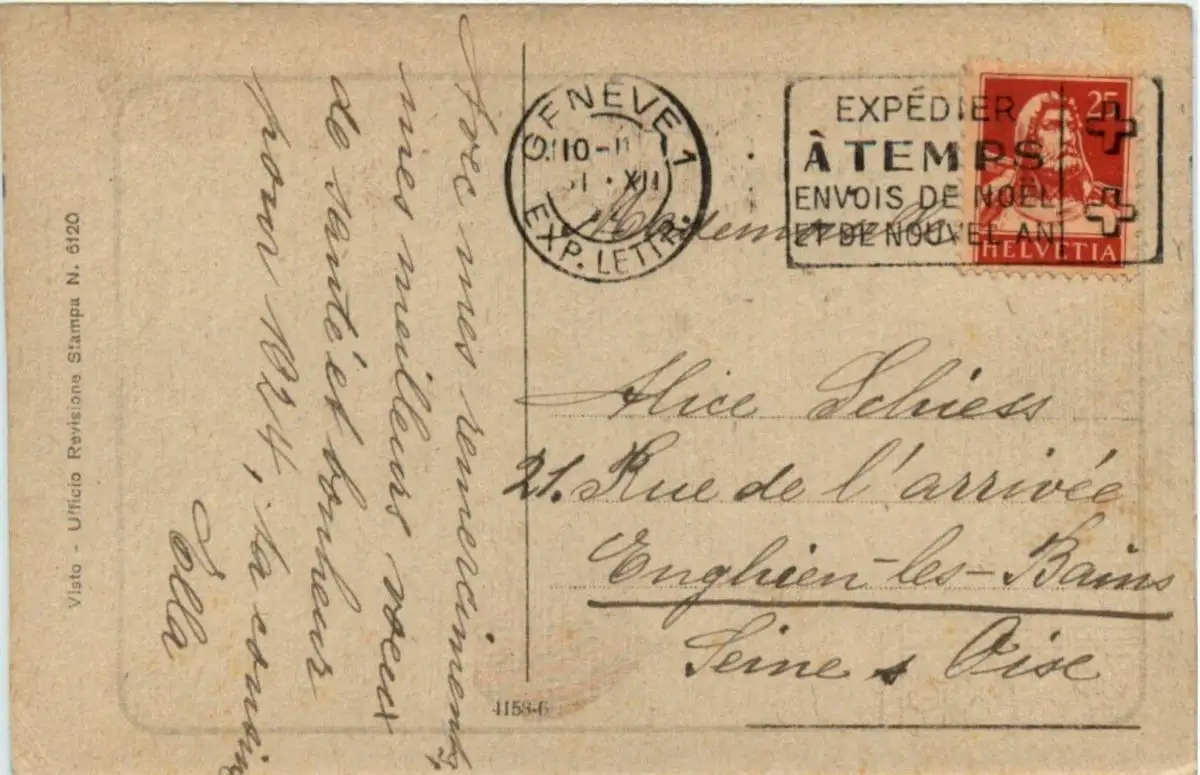 Avec mes remerciments,
mes meilleurs voeux
de santé et bonheur
pour 1924, ta cousine
Ella
GENÈVE 1
EXP. LETTR.
EXPÉDIER
À TEMPS
ENVOIS DE NOËL
ET DE NOUVEL AN
25
HELVETIA
Mademoiselle
Alice Schiess
21. Rue de l'arrivée
Enghien-les-Bains
Seine s Oise
Visto - Ufficio Revisione Stampa N. 6120
4158-6